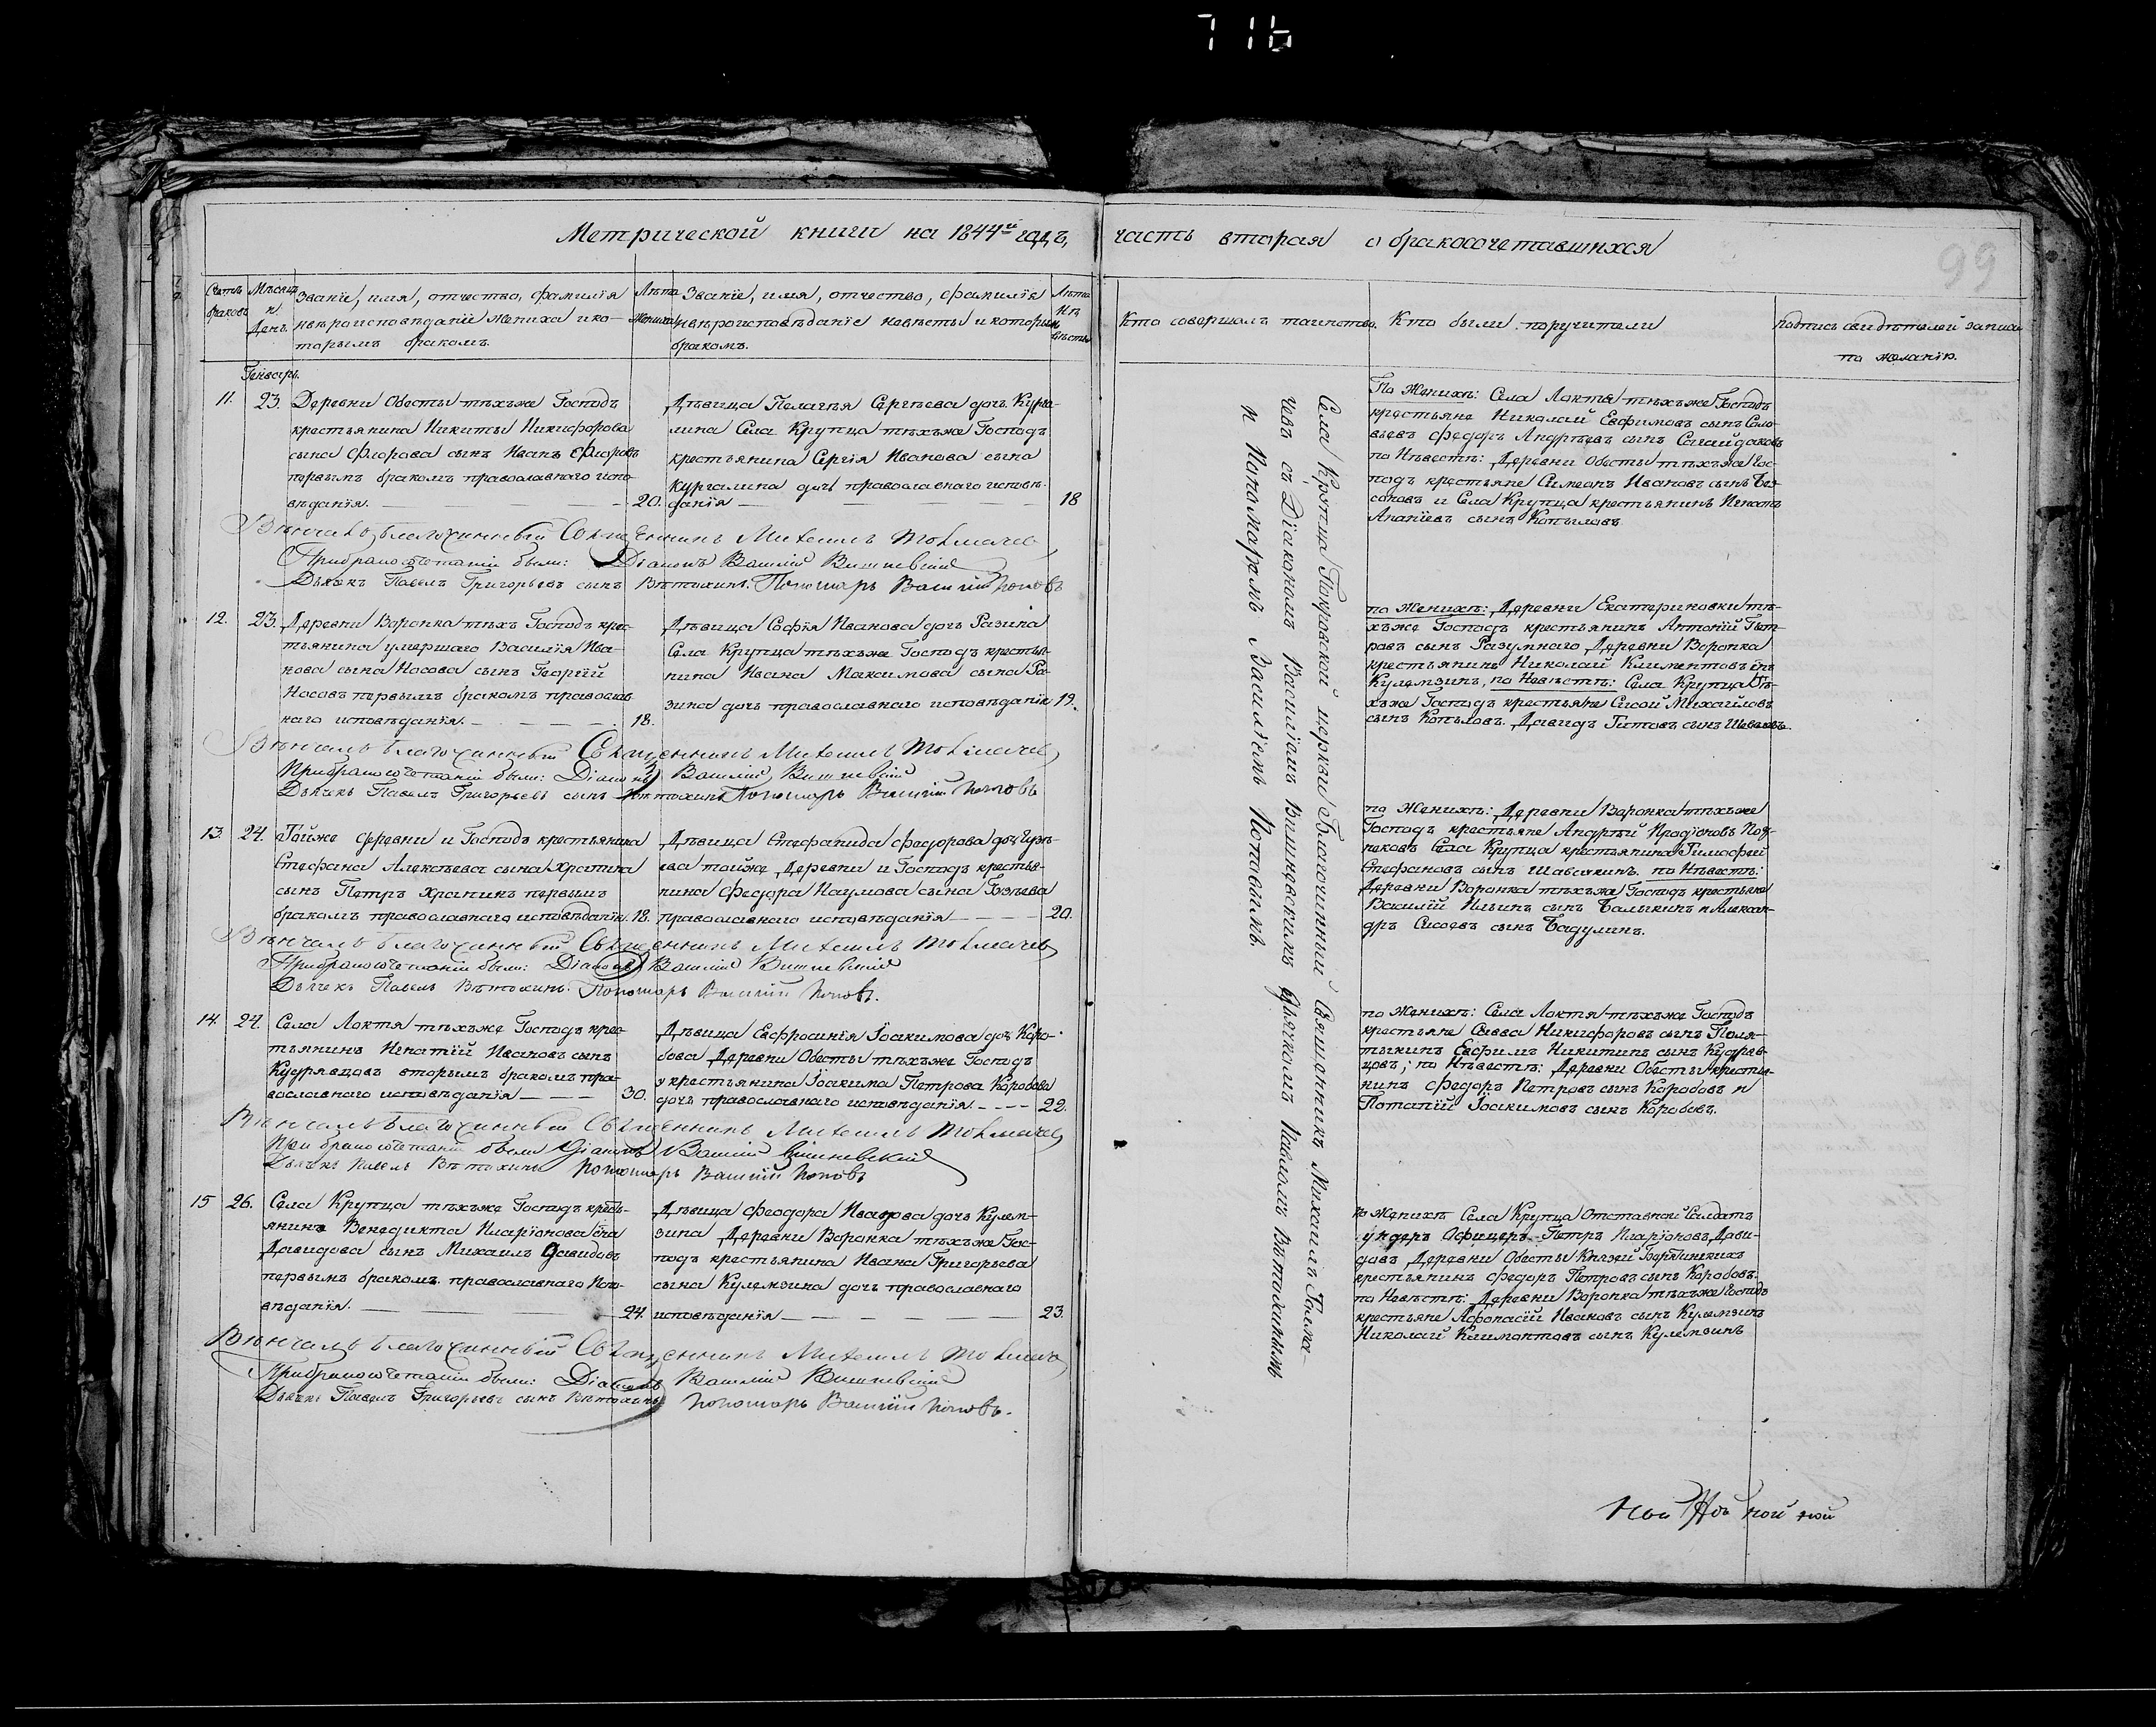 716
Метрической книги на 1844й годъ,
часть вторая о бракосочетавшихся
99
Счетъ браковъ
Мѣсяцъ и День
Званіе, имя, отчество, фамилія
и вѣроисповѣданіе жениха и ко-
торымъ бракомъ.
Лѣта Жениха
Званіе, имя, отчество, фамилія
и вѣроисповѣданіе невѣсты и которымъ
бракомъ.
Лѣта Невѣсты
Кто совершалъ таинство.
Кто были поручители
подпись свидѣтелей записи
по желанію.
Генварь.
11. 23. Деревни Обесты тѣхъже Господъ
крестьянина Никиты Никифорова
сына Флорова сынъ Иванъ Флоровъ
первымъ бракомъ православнаго испо-
вѣданія. 20.
Дѣвица Пелагѣя Сергѣева дочь Курга-
лина Села Крупца тѣхъже Господъ
крестьянина Сергія Иванова сына
Кургалина дочь православнаго исповѣ-
данія 18
По Женихѣ: Села Локтя тѣхъже Господъ
крестьяне Николай Евфимовъ сынъ Соло-
вьевъ Федоръ Андрѣевъ сынъ Сагайдаковъ
по Нѣвестѣ: Деревни Обесты тѣхъже Гос-
подъ крестьяне Симеонъ Ивановъ сынъ
и Села Крупца крестьянинъ Игнатъ
Ананіевъ сынъ Копыловъ.
Вѣнчалъ благочинный Священникъ Михаилъ
При бракосочетаніи были: Діаконъ Василій Вишневскій
Дьячекъ Павелъ Григорьевъ сынъ Вѣтохинъ. Пономарь Василій Поповъ
12. 23. Деревни Воронка тѣхъ Господъ крес-
тьянина умершаго Василія Ива-
нова сына Носова сынъ Георгій
Носовъ первымъ бракомъ православ-
наго исповѣданія. 18.
Дѣвица Софія Иванова дочь Разина
Села Крупца тѣхъже Господъ крестья-
нина Ивана Максимова сына Ра-
зина дочь православнаго исповѣданія 19.
по Женихѣ: Деревни Екатериновки тѣ-
хъже Господъ крестьянинъ Антоній Пет-
ровъ сынъ Разумнаго Деревни Воронка
крестьянинъ Николай Климентовъ снъ
Кулемзинъ, по Невѣстѣ: Села Крупца тѣ-
хъже Господъ крестьяне Сисой Михайловъ
сынъ Копыловъ. Давидъ Титовъ сынъ
Вѣнчалъ благочинный Священникъ Михаилъ
При бракосочетаніи были: Діаконъ Василій Вишневскій
Дьячекъ Павелъ Григорьевъ сынъ Вѣтохинъ Пономарь Василій Поповъ
13. 24. Тойже деревни и Господъ крестьянина
Стефана Алексѣева сына Храпина
сынъ Петръ Храпинъ первымъ
бракомъ православнаго исповѣданія. 18.
Дѣвица Стефанида Федорова дочь
ева тойже Деревни и Господъ крестья-
нина Федора Наумова сына
православнаго исповѣданія 20.
по Женихѣ: Деревни Воронка тѣхъже
Господъ крестьяне Андрѣй Продіоновъ
Села Крупца крестьянина Тимофей
Стефановъ сынъ Шавыкинъ. по Нѣвестѣ:
Деревни Воронка тѣхъже Господъ крестьяне
Василій Ильинъ сынъ Балыкинъ и Алексан-
дръ Сисоевъ сынъ Бадулинъ.
Вѣнчалъ благочинный Священникъ Михаилъ
При бракосочетаніи были: Діаконъ Василій Вишневскій
Дьячекъ Павелъ Вѣтохинъ. Пономарь Василій Поповъ.
14. 24. Села Локтя тѣхъже Господъ крес-
тьянинъ Игнатій Ивановъ сынъ
Кудрявцовъ вторымъ бракомъ пра-
вославнаго исповѣданія 30.
Дѣвица Евфросинія Іоакимова дочь Коро-
бова Деревни Обесты тѣхъже Господъ
крестьянина Іоакима Петрова Коробова
дочь православнаго исповѣданія. 22.
по Женихѣ: Села Локтя тѣхъже Господъ
крестьяне Савва Никифоровъ сынъ Поля-
тыкинъ Евфимъ Никитинъ сынъ Кудрев-
цовъ; по Нѣвестѣ: Деревни Обесты крестья-
нинъ Федоръ Петровъ сынъ Коробовъ и
Потапій Іоакимовъ сынъ Коробовъ.
Вѣнчалъ благочинный Священникъ Михаилъ
При бракосочетаніи были Діаконъ Василій Вишневскій
Дьячекъ Павелъ Вѣтохинъ Пономарь Василій Поповъ
15 26. Села Крупца тѣхъже Господъ кресть-
янинъ Венедикта Иларіонова сна
Давидова сынъ Михаилъ Давидовъ
первымъ бракомъ православнаго Испо-
вѣданія. 24.
Дѣвица Феодора Иванова дочь Кулем-
зина Деревни Воронка тѣхъже Гос-
подъ крестьянина Ивана Григорьева
сына Кулемзина дочь православнаго
исповѣданія 23.
По Женихѣ Села Крупца Отставной Солдатъ
ундеръ Офицеръ Петръ Иларіоновъ Дави-
довъ Деревни Обесты Князей
крестьянинъ Федоръ Петровъ сынъ Коробовъ.
по Невѣстѣ: Деревни Воронка тѣхъже Господъ
крестьяне Афонасій Ивановъ сынъ Кулемзинъ
Николай Климонтовъ сынъ Кулемзинъ
Вѣнчалъ благочинный Священникъ Михаилъ
При бракосочетаніи были: Діаконъ Василій Вишневскій
Дьячекъ Павелъ Григорьевъ сынъ Вѣтохинъ Пономарь Василій Поповъ.
Села Крупца Покровской церкви Благочинный Священникъ Михаилъ
чевъ съ Діакономъ Василіемъ Вишневскимъ Дьячкомъ Павломъ Вѣтохинымъ
и Понамаремъ Василіемъ Поповымъ.